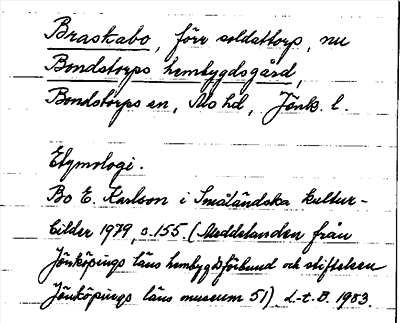 Braskabo, förr soldattorp, nu
Bondstorps hembygdsgård,
Bondstorps sn, Mo hd, Jönk. l.
Etymologi.
Bo E. Karlson i Småländska kultur-
bilder 1979, s. 155 (Meddelanden från
Jönköpings läns hembygdsförbund och stiftelsen
Jönköpings läns museum 51). L-t. B. 1983.